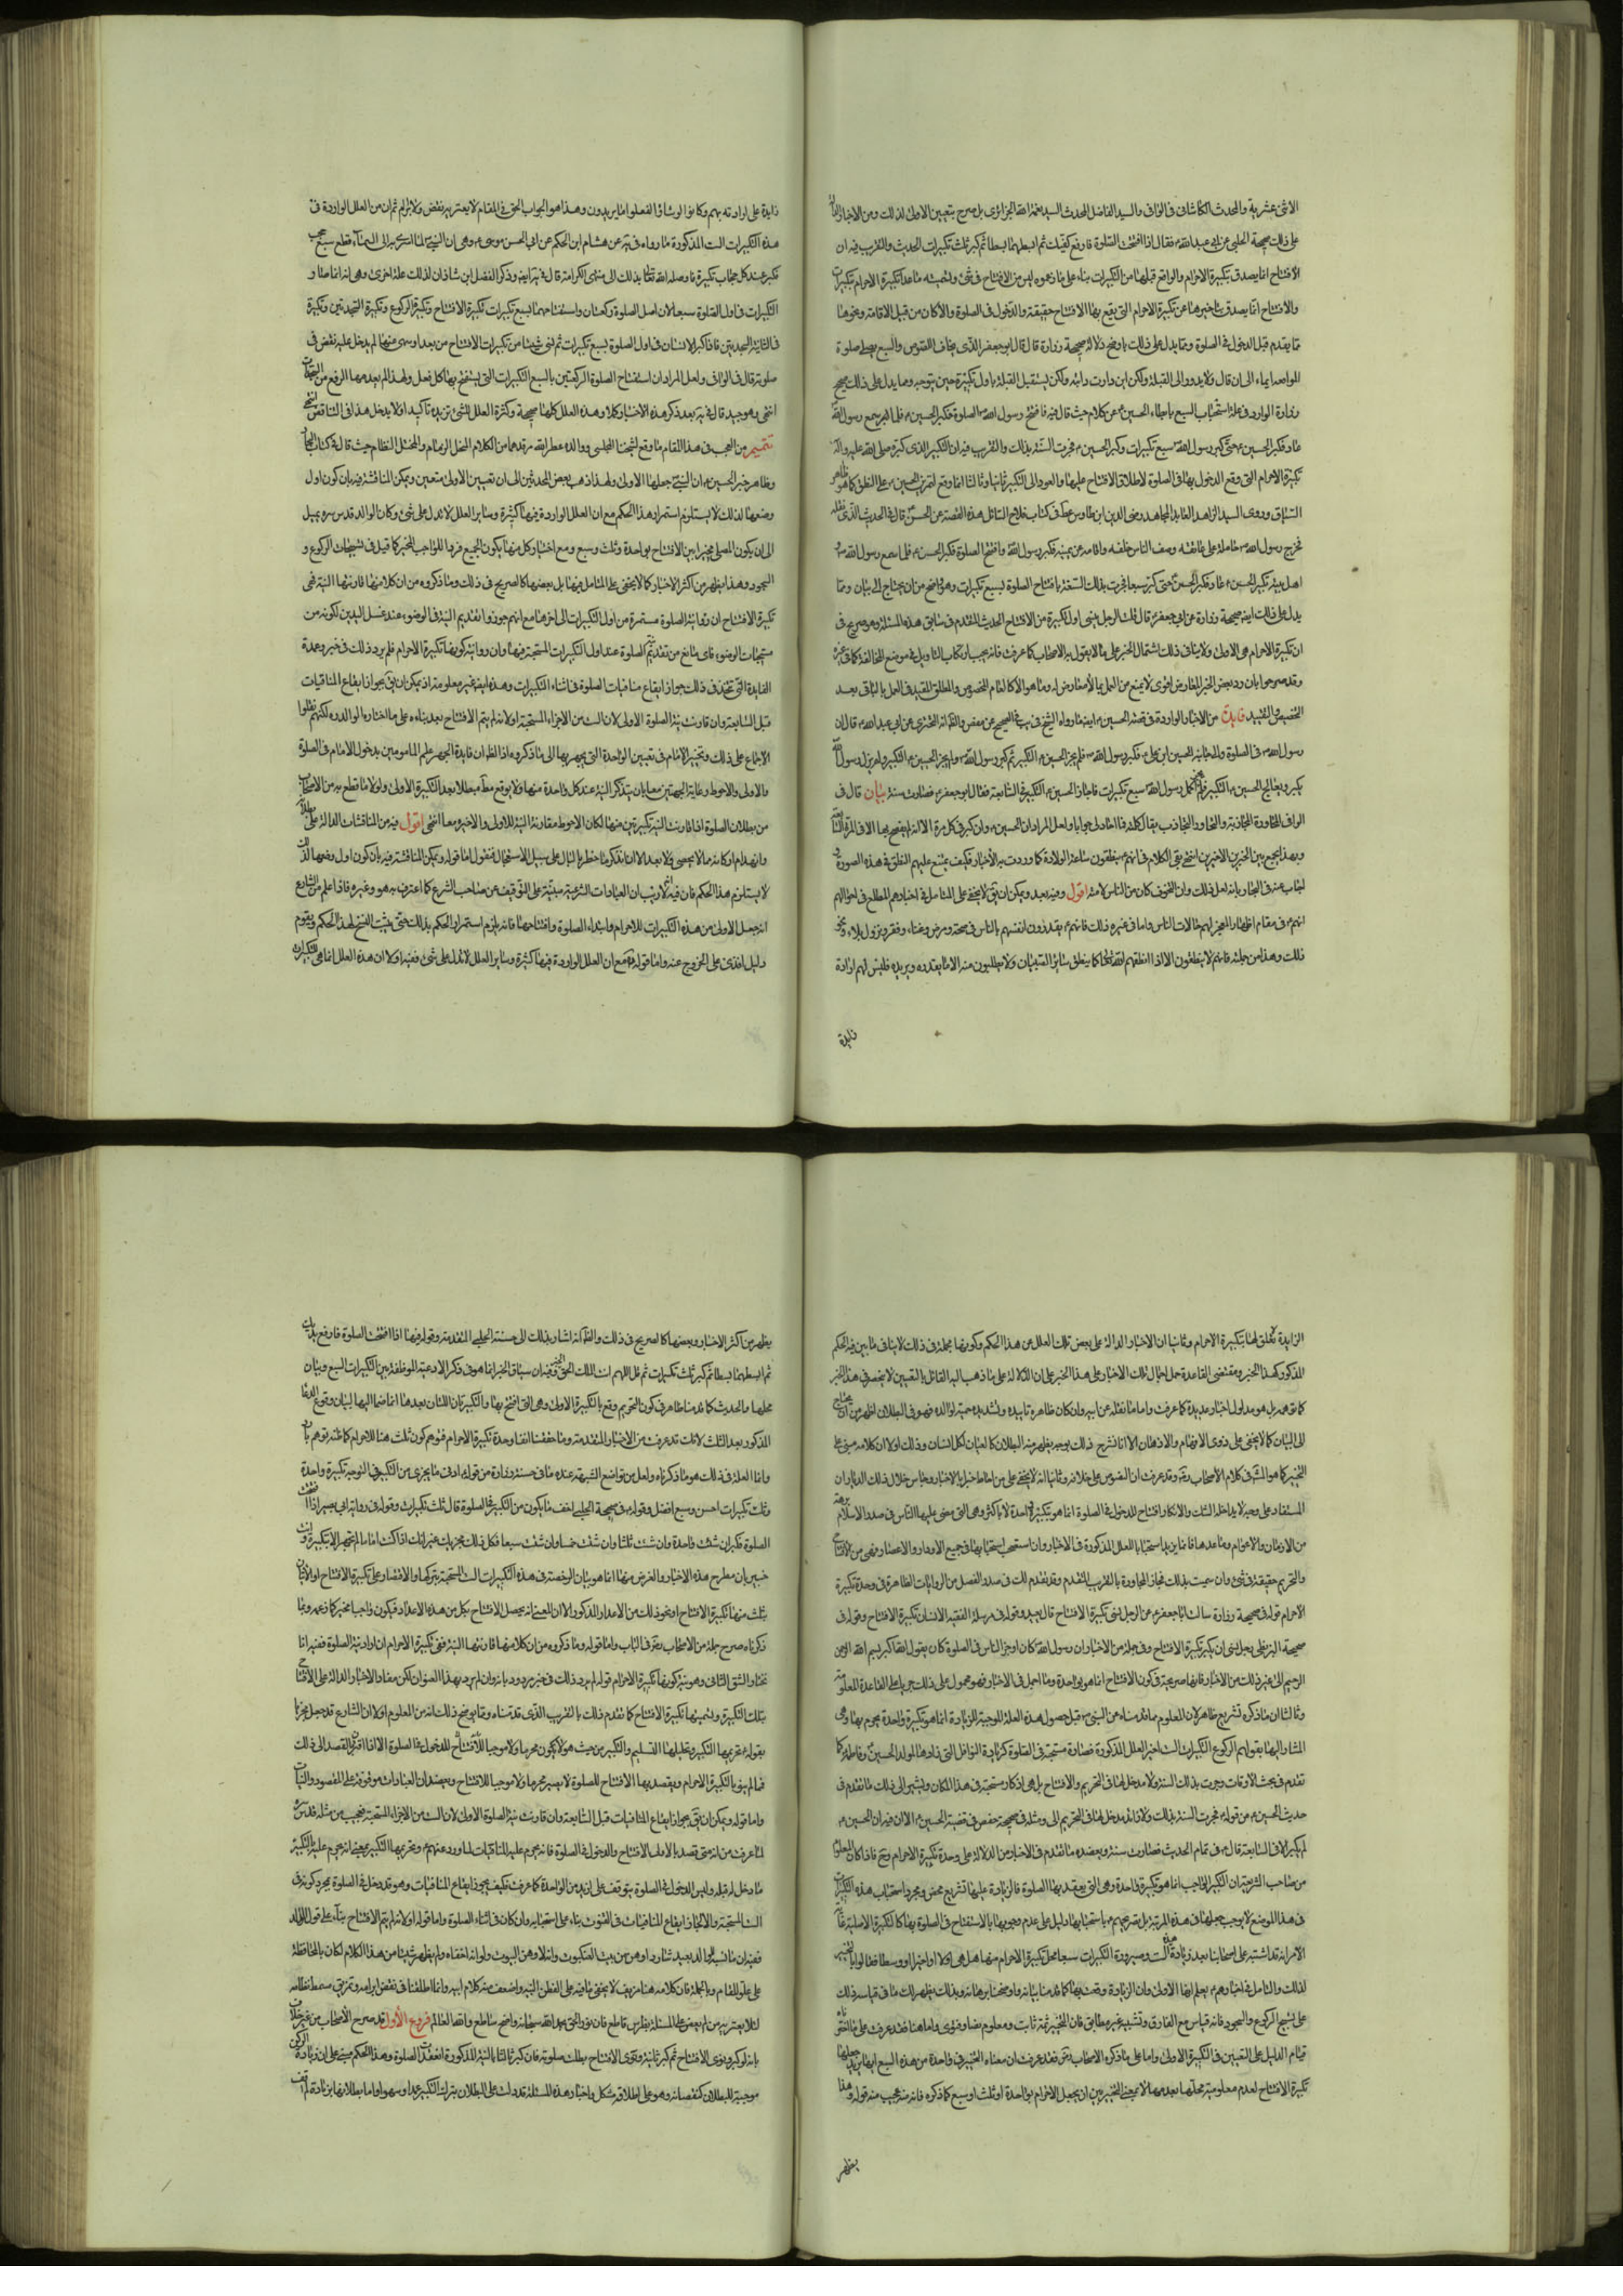 الاثنى عشرية والمحدث الكاشانى فى الوافى والسيد الفاضل المحدث السيد نعمة الله الجزائرى بل صرح بتعيين الاولى لذلك ومن الاخبار
على ذلك صحيحة الحلبى عن ابى عبد الله فقال اذا افتتحت الصلوة فارفع كفيك ثم ابسطهما بسطا ثم كبر ثلث تكبيرات الحديث والتقريب فيه ان
الافتتاح انما يصدق بتكبيرة الاحرام والواقع قبلها من التكبيرات بناء على ما زعموه ليس من الافتتاح فى شئ وتسميته ما عدا تكبيرة الاحرام بتكبيرات
والافتتاح انما يصدق بتاخيرها عن تكبيرة الاحرام التى يقع بها الافتتاح حقيقة والدخول فى الصلوة والا كان من قبيل الاقامة ونحوها
مما يتقدم قبل الدخول فى الصلوة ومما يدل على ذلك باوضح دلالة صحيحة زرارة قال قال ابو جعفر الذى يخاف اللصوص والسبع يصلى صلوة
المواقفة ايماء الى ان قال ولا يدور الى القبلة ولكن اين دارت دابته ولكن يستقبل القبلة باول تكبيرة حين يتوجه ومما يدل على ذلك صحيح
زرارة الوارد فى علة استحباب السبع بابطاء الحسين عن كلام حيث قال فيه فافتتح رسول الله الصلوة فكبر الحسين فلما سمع رسول الله
عاد فكبر الحسين حتى كبر رسول الله سبع تكبيرات وكبر الحسين فجرت السنة بذلك والتقريب فيه ان التكبير الذى كبره صلى الله عليه وآله
تكبيرة الاحرام التى وقع الدخول بها فى الصلوة لاطلاق الافتتاح عليها والعود الى التكبير ثانيا وثالثا انما وقع لتمرين الحسين على النطق كما هو ظاهر
السياق وروى السيد الزاهد العابد المجاهد رضى الدين ابن طاوس فى كتاب فلاح السائل هذه القصة عن الحسن قال فى الحديث الذى نقله
فخرج رسول الله حامله على عاتقه وصف الناس خلفه واقامه عن يمينه فكبر رسول الله وافتتح الصلوة فكبر الحسن فلما سمع رسول الله
اهل بيته تكبير الحسن عاد فكبر الحسن حتى كبر سبعا فجرت بذلك السنة بافتتاح الصلوة بسبع تكبيرات وهو اوضح من ان يحتاج الى بيان ومما
يدل على ذلك ايضا صحيحة زرارة عن ابى جعفر قال قلت الرجل ينسى اول تكبيرة من الافتتاح الحديث المتقدم فى سابق هذه المسئلة وهو صريح فى
ان تكبيرة الاحرام هى الاولى ولا ينافى ذلك اشتمال الخبر على ما لا يقول به الاصحاب كما عرفت فانه يجب ارتكاب التاويل فى موضع المخالفة
وقد صرحوا بان رد بعض الخبر لمعارض اقوى لا يمنع من العمل بما لا معارض له وما هو الا كالعام المخصوص والمطلق المقيد فى العمل بالباقى بعد
التخصيص والتقييد فايدة من الاخبار الواردة فى قصة الحسين ايضا ما رواه الشيخ فى الصحيح عن حفص والظاهر انه البخترى عن ابى عبد الله قال ان
رسول الله فى الصلوة والى جانبه الحسين ابن على فكبر رسول الله فلم يحر الحسين التكبير ثم كبر رسول الله ولم يحر الحسين التكبير ولم يزل رسول الله
يكبر ويعالج الحسين التكبير فلم يحر حتى اكمل رسول الله سبع تكبيرات فاحار الحسين التكبير فى السابعة فقال ابو جعفر فصارت سنة بيان قال فى
الوافى المحاورة المجاوبة والتحاور التجاوب يقال كلمته فما احار الى جوابا ولعل المراد ان الحسين وان كبر فى كل مرة الا انه لم يفصح بها الا فى المرة
وبهذا يجمع بين الخبرين الاخيرين انتهى بقى الكلام فى انهم ينطقون ساعة الولادة كما وردت به الاخبار فكيف يمتنع عليهم النطق فى هذه الصورة
اجاب عنه فى البحار بانه لعل ذلك وان الخوف كان من الناس لامنه اقول وفيه بعد ويمكن ان يقال لا يخفى على المتامل فى اخبارهم المطلع فى احوالهم
انهم فى مقام اظهار المعجز لهم حالات الناس واما فى غيره ذلك فانهم يقدرون انفسهم بالناس فى صحة ومرض وغناء وفقر ونزول بلاء ونحو
ذلك وهذا من جملته فانهم لا ينطقون الا اذا انطقهم الله تعالى كما ينطق سائر الصبيان ولا يطلبون منه الا ما يقدره ويريده فليس لهم ارادة
زايدة
زايدة على ارادته بهم وكانوا لو شاؤا لفعلوا ما يريدون وهذا هو الجواب الحق فى المقام لا يعتريه نقض ولا ابرام ثم ان من العلل الواردة فى
هذه التكبيرات الست المذكورة ما رواه فى يه عن هشام ابن الحكم عن ابى الحسن موسى وهى ان النبى لما اسرى به الى السماء قطع سبع حجب
فكبر عند كل حجاب تكبيرة فاوصله الله تعالى بذلك الى منتهى الكرامة قال فى يه ايضا وذكر الفضل ابن شاذان لذلك علة اخرى وهى انه انما صار
التكبيرات فى اول الصلوة سبعا لان اصل الصلوة ركعتان واستفتاحهما بسبع تكبيرات تكبيرة الافتتاح وتكبيرة الركوع وتكبيرة السجدتين وتكبيرة
فى الثانية السجدتين فاذا كبر الانسان فى اول الصلوة بسبع تكبيرات ثم نسى شيئا من تكبيرات الافتتاح من بعد او سهى عنها لم يدخل عليه نقص فى
صلوته قال فى الوافى ولعل المراد ان استفتاح الصلوة الركعتين بالسبع التكبيرات التى يستفتح بها كل فعل ولهذا لم يعد معها الرفع من السجدات
انتهى وهو جيد قال فى يه بعد ذكر هذه الاخبار وكلا وهذه العلل كلها صحيحة وكثرة العلل للشئ تزيده تاكيدا ولا يدخل هذا فى التناقض انتهى
تتميم من العجب فى هذا المقام ما وقع لشيخنا المجلسى ووالده عطر الله مرقدهما من الكلام المنحل الزمام والمختل النظام حيث قال فى كتاب البحار
وظاهر خبر الحسين ان النبى جعلها الاولى ولهذا ذهب بعض المحدثين الى ان تعيين الاولى متعين ويمكن المناقشة فيه بان كون اول
وضعها لذلك لا يستلزم استمرار هذا الحكم مع ان العلل الواردة فيها كثيرة وسائر العلل لا تدل على شئ وكان الوالد قدس سره يميل
الى ان يكون المصلى مخيرا بين الافتتاح بواحدة وثلث وسبع ومع اختيار كل منها يكون الجميع فردا للواجب المخير كما قيل فى تسبيحات الركوع و
السجود وهذا اظهر من اكثر الاخبار كما لا يخفى على المتامل فيها بل بعضها كالصريح فى ذلك وما ذكروه من ان كلا منها قارنتها النية فهى
تكبيرة الافتتاح ان ارادوا نية الصلوة مستمرة من اول التكبيرات الى اخرها مع انهم جوزوا تقديم النية فى الوضوء عند غسل اليدين لكونه من
مستحبات الوضوء فاى مانع من تقديم نية الصلوة عند اول التكبيرات المستحبة فيها وان ارادوا نية كونها تكبيرة الاحرام فلم يرد ذلك فى خبر وعمدة
الفايدة التى تتخيل فى ذلك جواز ايقاع منافيات الصلوة فى اثناء التكبيرات وهذه ايضا غير معلومة اذ يمكن ان يقال بجواز ايقاع المنافيات
قبل السابعة وان قارنت نية الصلوة الاولى لان الست من الاجزاء المستحبة او لانه لم يتم الافتتاح بعد بناء على ما اختاره الوالد ره لكنهم نقلوا
الاجماع على ذلك وتخيير الامام فى تعيين الواحدة التى يجهر بها الى ما ذكروه اذ الظاهر ان فايدة الجهر علم المامومين بدخول الامام فى الصلوة
والاولى والاحوط رعاية الجهتين معا بان يتذكر النية عند كل واحدة منها ولا يوقع مبطلا بعد التكبيرة الاولى ولولا ما قطع به من الاصحاب
من بطلان الصلوة اذا قارنت النية تكبيرتين منها لكان الاحوط مقارنة النية للاولى والاخيرة معا انتهى اقول فيه من المناقشات الدالة على
وانهدام اركانه ما لا يحصى ولا يعد الا انا نذكر ما خطر بالبال على سبيل الاستعجال فنقول اما قوله ويمكن المناقشة فيه بان كون اول وضعها لذلك
لا يستلزم هذا الحكم فان فيه انه لا ريب ان العبادات الشرعية مبنية على التوقيف عن صاحب الشرع كما اعترف به هو وغيره فاذا علم من الشارع
انه جعل الاولى من هذه التكبيرات للاحرام وابتداء الصلوة وافتتاحها فانه يلزم استمرار الحكم بذلك حتى يثبت النسخ لهذا الحكم ويقوم
دليل اقوى على الخروج عنه واما قوله مع ان العلل الواردة فيها كثيرة وسائر العلل لا تدل على شئ ففيه اولا ان هذه العلل انما هى للتكبيرات
الزايدة لا تعلق لها بتكبيرة الاحرام وثانيا ان الاخبار الدالة على بعض تلك العلل عن هذا الحكم وكونها مجملة فى ذلك لا ينافى ما بين فيه الحكم
المذكور كهذا الخبر ومقتضى القاعدة حمل اجمال تلك الاخبار على هذا الخبر على ان الدلالة على ما ذهب اليه القائل بالتعيين لا ينحصر فى هذا الخبر
كما توهمه بل هو مدلول اخبار عديدة كما عرفت واما ما نقله عن ابيه وان كان ظاهره تاييده وتشديده حمية لوالده فهو فى البطلان اظهر من ان يحتاج
الى البيان كما لا يخفى على ذوى الافهام والاذهان الا انا نشرح ذلك بوجه يظهر منه البطلان كالعيان لكل انسان وذلك اولا ان كلامه مبنى على
التخيير كما هو المشهور فى كلام الاصحاب وقد عرفت ان النصوص على خلافه وثانيا انه لا يخفى على من احاط خبرا بالاخبار وجاس خلال تلك الديار ان
المستفاد على وجه لا يداخله الشك والانكار افتتاح الدخول فى الصلوة انما هو بتكبيرة واحدة لا باكثر وهى التى مضى عليها الناس فى صدر الاسلام برهة
من الازمان والاعوام وما عداها فانما زيد استحبابا للعلل المذكورة فى الاخبار وان استصحب استحبابها فى جميع الادوار والاعصار وهى من الافتتاح
والتحريم حقيقة فى شئ وان سميت بذلك مجاز المجاورة بالتقريب المتقدم وقد تقدم لك فى صدر الفصل من الروايات الظاهرة فى وحدة تكبيرة
الاحرام قوله فى صحيحة زرارة سالت ابا جعفر عن الرجل ينسى تكبيرة الافتتاح قال يعيد وقوله فى مرسلة الفقيه الانسان تكبيرة الافتتاح وقوله فى
صحيحة البزنطى رجل نسى ان يكبر تكبيرة الافتتاح وفى جملة من الاخبار ان رسول الله كان اوجز الناس فى الصلوة كان يقول الله اكبر بسم الله الرحمن
الرحيم الى غير ذلك من الاخبار فانها صريحة فى كون الافتتاح انما هو بواحدة وما اجمل فى الاخبار فهو محمول على ذلك جريا على القاعدة المعلومة
وثالثا ان ما ذكره تشريع ظاهر لان المعلوم مما قدمناه عن النبى قبل حصول هذه العلة الموجبة للزيادة انما هو تكبيرة واحدة يحرم بها وهى
المشار اليها بقولهم الركوع التكبيرات الست اخبر العلل المذكورة فصارت مستحبة فى الصلوة كزيادة النوافل التى زادها لمولد الحسنين وفاطمة كما
تقدم فى بحث الاوقات وجرت بذلك السنة ولا مدخل لها فى التحريم والافتتاح بل هى اذكار مستحبة فى هذا المكان ويشير الى ذلك ما تقدم فى
حديث الحسين من قوله فجرت السنة بذلك ولا زائد مدخل لها فى التحريم الى ومثله فى صحيحة حفص فى قضية الحسين الا ان فيه ان الحسين
لم يكبر الا فى السابعة قال فى تمام الحديث فصارت سنة ويعضده ما تقدم فى الاخبار من الدلالة على وحدة تكبيرة الاحرام وحينئذ فاذا كان المعلوم
من صاحب الشريعة ان التكبير الواجب انما هو تكبيرة واحدة وهى التى يعقد بها الصلوة فالزيادة عليها تشريع محض ومجرد استحباب هذه التكبيرات
فى هذا الموضع لا يوجب جعلها فى هذه المرتبة بل تصريحهم باستحبابها دليل على عدم وجوبها بالاستفتاح فى الصلوة بها كالتكبيرة الاصلية
الامر انه قد اشتبه على اصحابنا بعد زيادة هذه الست وصيرورة التكبيرات سبعا محل تكبيرة الاحرام منها هل هى اولا او اخيرا او وسطا فقالوا بالتخيير
لذلك والتامل فى اخبارهم يعلم انها الاولى وان الزيادة وقعت بها كما قدمنا بيانه واوضحنا برهانه وبذلك يظهر لك ما فى قياسه ذلك
على تسبيح الركوع والسجود فانه قياس مع الفارق وتشبيه غير مطابق فان التخيير ثمة ثابت ومعلوم نصا وفتوى واما هنا فقد عرفت على
قيام الدليل على التعيين فى التكبيرة الاولى واما على ما ذكره الاصحاب فقد عرفت ان معناه التخيير فى واحدة من هذه السبع ايها يريد جعلها
تكبيرة الافتتاح لعدم معلومية محلها بعد مجملها لا بمعنى التخيير بين ان يجعل الاحرام بواحدة او ثلث او سبع كما ذكره فانه منه عجيب منه قوله وهذا
يظهر
يظهر من اكثر الاخبار وبعضها كالصريح فى ذلك والظاهر انه اشار بذلك الى حسنة الحلبى المتقدمة وقوله فيها اذا افتتحت الصلوة فارفع يديك
ثم ابسطهما بسطا ثم كبر ثلث تكبيرات ثم قل اللهم انت الملك الحق وفيه ان سياق الخبر انما هو فى ذكر الادعية الموظفة بين التكبيرات السبع وبيان
محلها والحديث كما قدمنا ظاهر فى كون التحريم وقع بالتكبيرة الاولى وهى التى افتتح بها والتكبيرتان اللتان بعدها انما ضما اليها لبيان وقوع الدعاء
المذكور بعد الثلث لانك قد عرفت من الاخبار المتقدمة وما حققنا انفا وحدة تكبيرة الاحرام فتوهم كون ثلث هنا للاحرام كما ظنه توهم بارد
وانما العلة فى ذلك هو ما ذكرناه ولعل من تواضع الشبهة عنده ما فى حسنة زرارة من قوله ادنى ما يجزى من التكبير فى التوجه تكبيرة واحدة
وثلث تكبيرات احسن وسبع افضل وقوله فى صحيحة الحلبى اخف ما يكون من التكبير فى الصلوة قال ثلث تكبيرات وقوله فى رواية ابى بصير اذا افتتحت
الصلوة فكبر ان شئت واحدة وان شئت ثلثا وان شئت خمسا وان شئت سبعا فكل ذلك مجز عنك غير انك اذا كنت اماما لم تجهر الا بتكبيرة وانت
خبير بان مطرح هذه الاخبار والغرض منها انما هو بيان الرخصة فى هذه التكبيرات الست المستحبة بتركها والاقتصار على تكبيرة الافتتاح او الاتيان
بثلث منها تكبيرة الافتتاح او نحو ذلك من الاعداد المذكورة لا ان المعنى انه يحصل الافتتاح بكل من هذه الاعداد فيكون واجبا مخيرا كما زعمه وبما
ذكرناه صرح جملة من الاصحاب فى الباب واما قوله وما ذكروه من ان كلا منها قارنتها النية فهى تكبيرة الاحرام ان ارادوا نية الصلوة ففيه انا
نختار الشق الثانى وهو نية كونها تكبيرة الاحرام قوله لم يرد ذلك فى خبر مردود بانه وان لم يرد بهذا العنوان لكن مفاد الاخبار الدالة على الافتتاح
بتلك التكبيرة وتسميتها تكبيرة الافتتاح كما تقدم ذلك بالتقريب الذى قدمناه ومما يوضح ذلك انه من المعلوم اولا ان الشارع قد جعل محرما
بقوله تحريمها التكبير وتحليلها التسليم والتكبير من حيث هو لا يكون محرما ولا موجبا للافتتاح للدخول فى الصلوة الا اذا اقترن القصد الى ذلك
فما لم ينو بالتكبيرة الاحرام ويقصد بها الافتتاح للصلوة لا يصير محرما ولا موجبا للافتتاح ويعضده ان العبادات موقوفة على القصود والنيات
واما قوله ويمكن ان يقال بجواز ايقاع المنافيات قبل السابعة وان قارنت نية الصلوة الاولى لان الست من الاجزاء المستحبة فعجيب من مثله قدس سره
لما عرفت من انه متى قصد بالاولى الافتتاح والدخول فى الصلوة فانه يحرم عليه المنافيات لما ورد عنهم وتحريمها التكبير بمعنى انه يحرم عليه بالتكبير
ما دخل له قبله وليس الدخول فى الصلوة يتوقف على ازيد من الواحدة كما عرفت فكيف يجوز ايقاع المنافيات وهو قد دخل فى الصلوة بمجرد كونه فى
الست المستحبة والا لجاز ايقاع المنافيات فى القنوت بناء على استحبابه وان كان فى اثناء الصلوة واما قوله او لانه لم يتم الافتتاح بناء على قول الوالد
ففيه ان ما نسبه لوالده بعيد شارد او هى من بيت العنكبوت وانه لاوهن البيوت ولو انه اخفاه ولم يظهر شيئا من هذا الكلام لكان بالمحافظة
على علو المقام وبالجملة فان كلامه هنا مزيف لا يخفى ما فيه على الفطن النبيه واضعف منه كلام ابيه وانما اطلنا فى نقض ابرامه وتمزيق سمط نظامه
لئلا يعتريه من لم يعض على المسئلة بضرس قاطع فان نور الحق بحمد الله سبحانه واضح ساطع والله العالم فروع الأول قد صرح الأصحاب من غير خلاف
بانه لو كبر ونوى الافتتاح ثم كبر ثانية ونوى الافتتاح بطلت صلوته فان كبر ثالثا بالنية المذكورة انعقدت الصلوة وهذا الحكم مبنى على ان زيادة الركن
موجبة للبطلان كنقصانه وهو على اطلاقه مشكل واخبار هذه المسئلة قد دلت على البطلان بترك التكبير عمدا وسهوا واما بطلانها بزيادة لم اقف